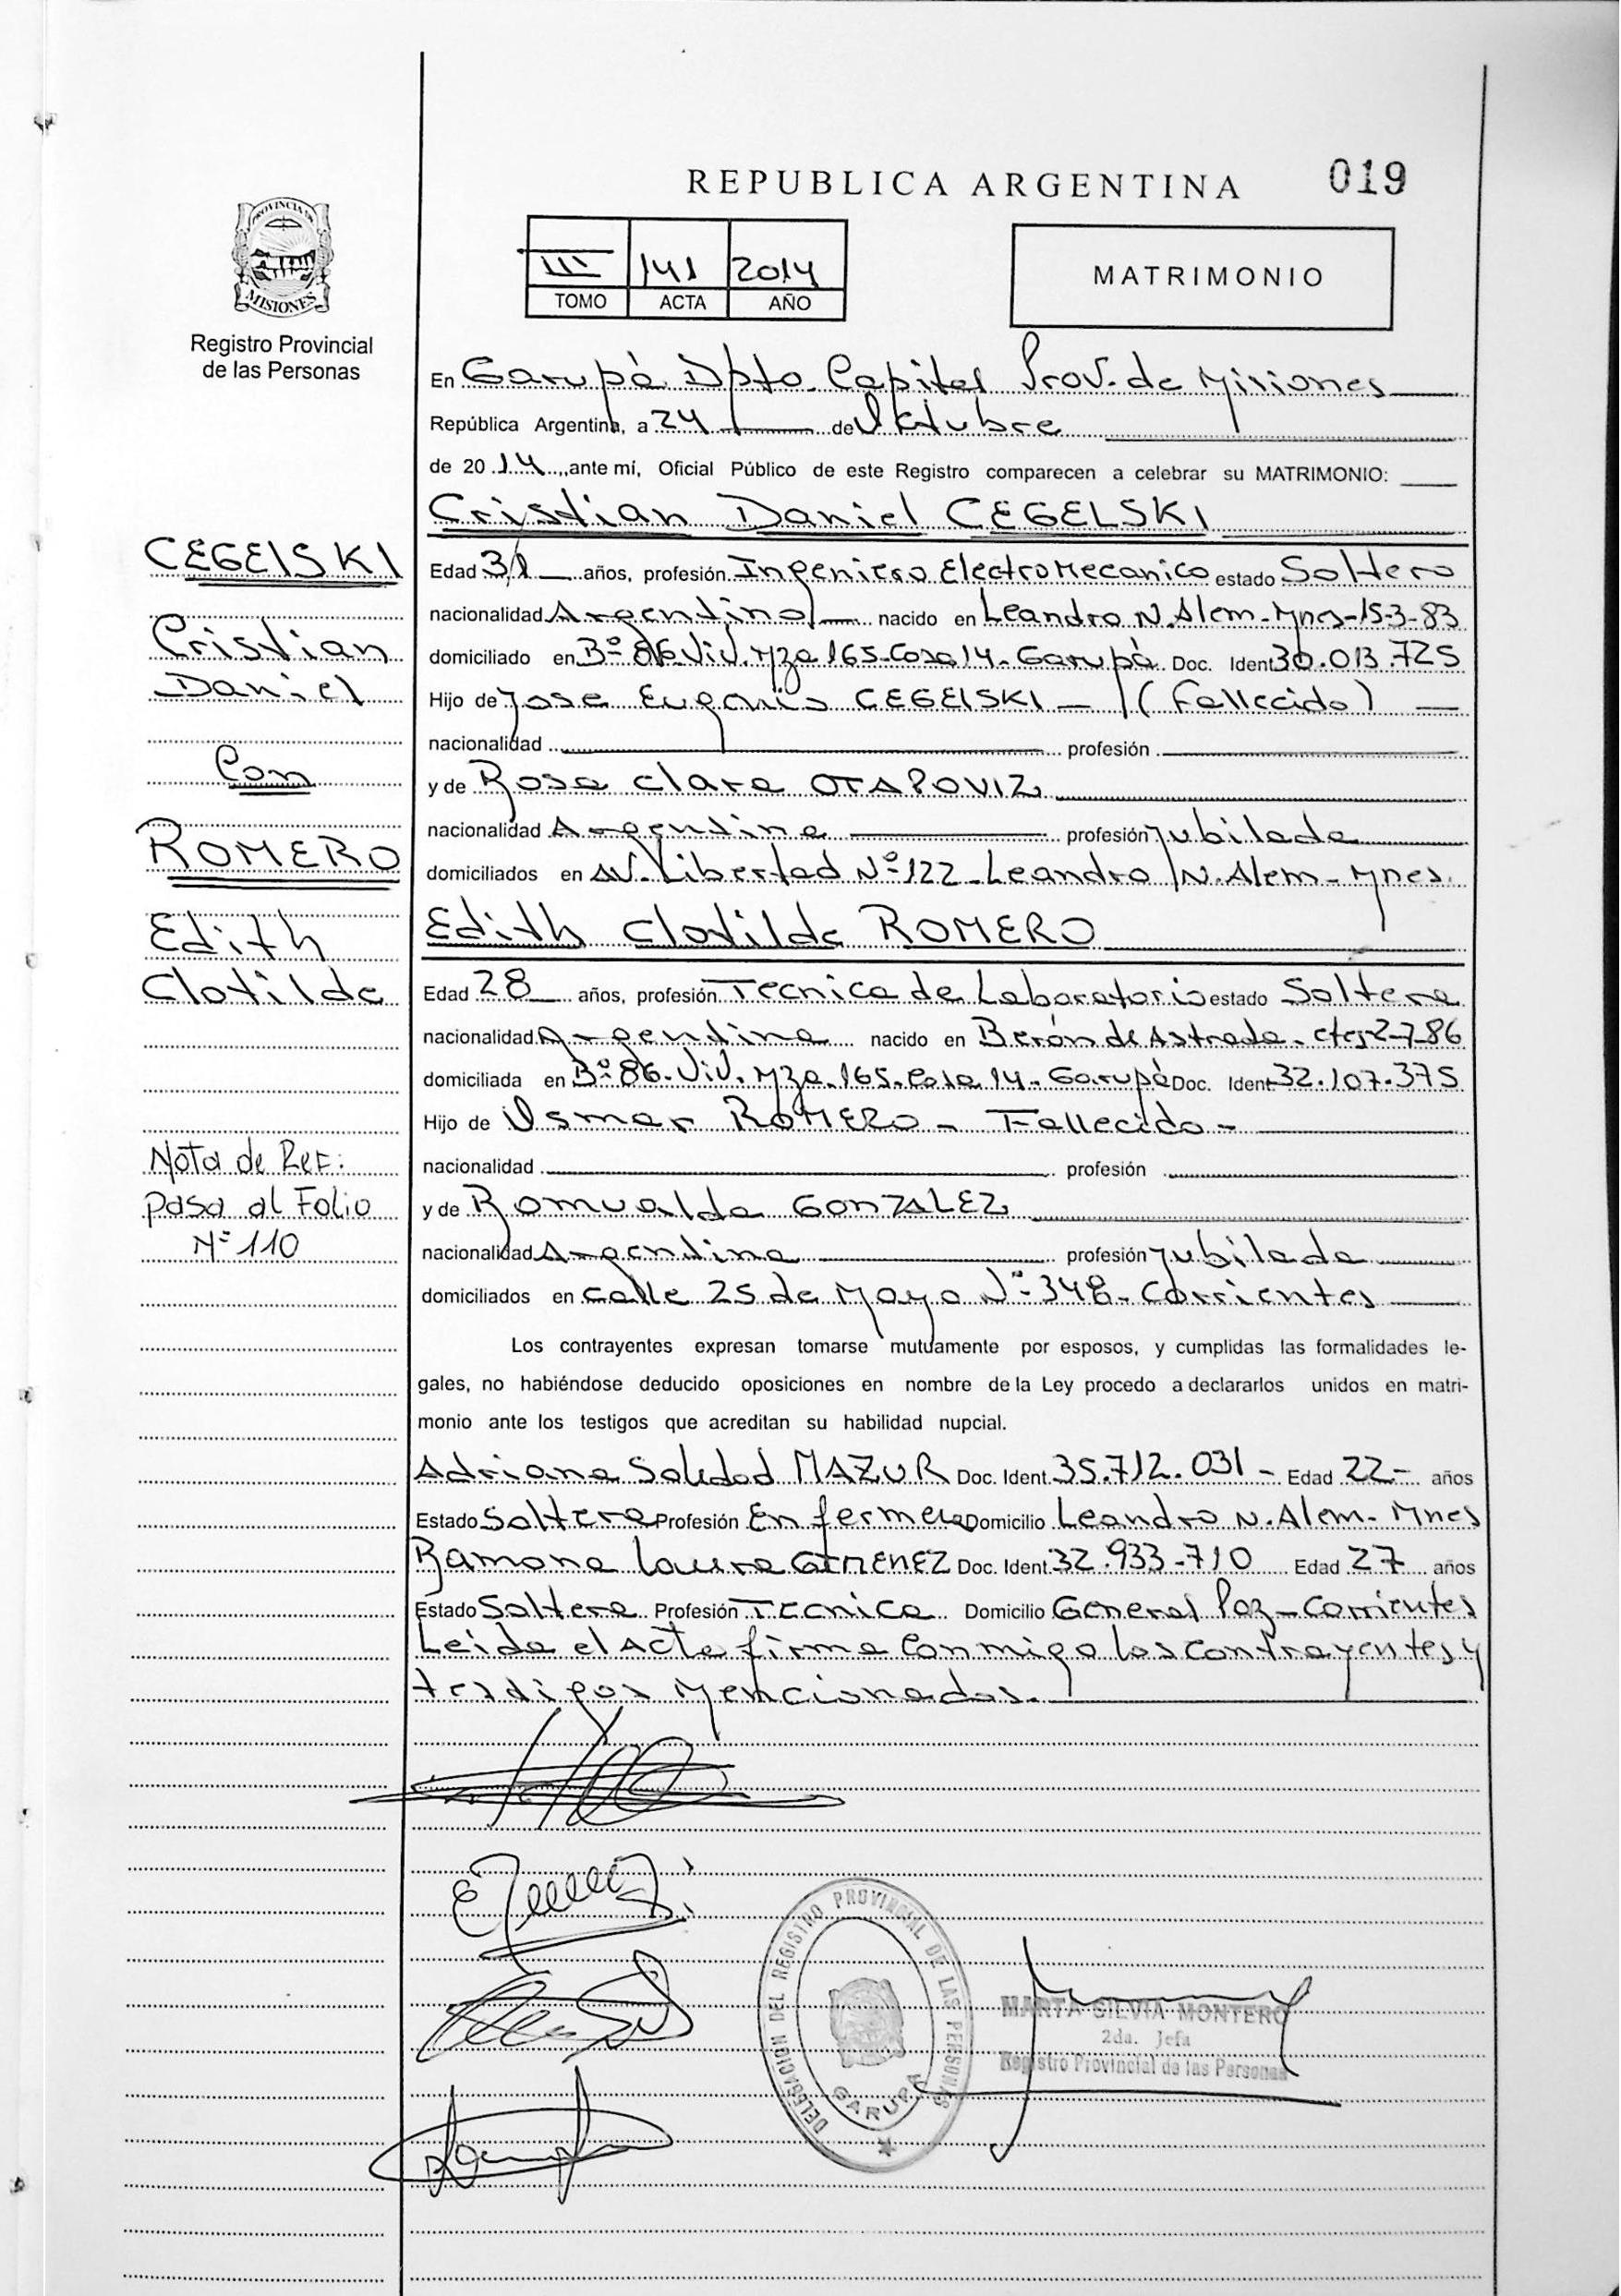 REPUBLICA ARGENTINA 019
PROVINCIA DE
MISIONES
Registro Provincial
de las Personas
III 141 2014
TOMO ACTA AÑO
MATRIMONIO
En Garupá Dpto. Capital Prov. de Misiones
República Argentina, a 24 de Octubre
de 2014, ante mí, Oficial Público de este Registro comparecen a celebrar su MATRIMONIO:
Cristian Daniel CEGELSKI
Edad 31 años, profesión Ingeniero ElectroMecanico estado Soltero
nacionalidad Argentino nacido en Leandro N. Alem - Mnes - 15-3-83
domiciliado en Bº 86. Viv. Mza 165. Casa 14. Garupá. Doc. Ident 30.013.725
Hijo de Jose Eugenio CEGELSKI - (Fallecido) -
nacionalidad profesión
y de Rosa Clara OTAPOVIZ
nacionalidad Argentina profesión Jubilada
domiciliados en AV. Libertad Nº 122 - Leandro N. Alem - Mnes.
Edith Clotilde ROMERO
Edad 28 años, profesión Tecnica de Laboratorio estado Soltera
nacionalidad Argentina nacido en Berón de Astrada - ctes 2-7-86
domiciliada en Bº 86. Viv. Mza. 165. Casa 14 - Garupá Doc. Ident 32.107.375
Hijo de Osmar ROMERO - Fallecido -
nacionalidad profesión
y de Romualda GONZALEZ
nacionalidad Argentina profesión Jubilada
domiciliados en calle 25 de Mayo Nº 348 - Corrientes
Los contrayentes expresan tomarse mutuamente por esposos, y cumplidas las formalidades le-
gales, no habiéndose deducido oposiciones en nombre de la Ley procedo a declararlos unidos en matri-
monio ante los testigos que acreditan su habilidad nupcial.
Adriana Soledad MAZUR Doc. Ident. 35.712.031 - Edad 22 - años
Estado Soltera Profesión Enfermera Domicilio Leandro N. Alem - Mnes
Ramona Laura GIMENEZ Doc. Ident. 32.933.710 Edad 27 años
Estado Soltera Profesión Tecnica Domicilio General Paz - Corrientes
Leida el Acta firma conmigo los contrayentes y
testigos Mencionados.
CEGELSKI
Cristian
Daniel
Con
ROMERO
Edith
Clotilde
Nota de Ref:
pasa al Folio
Nº 110
DELEGACION DEL REGISTRO PROVINCIAL DE LAS PERSONAS
GARUPA
MARTA SILVIA MONTERO
2da. Jefa
Registro Provincial de las Personas